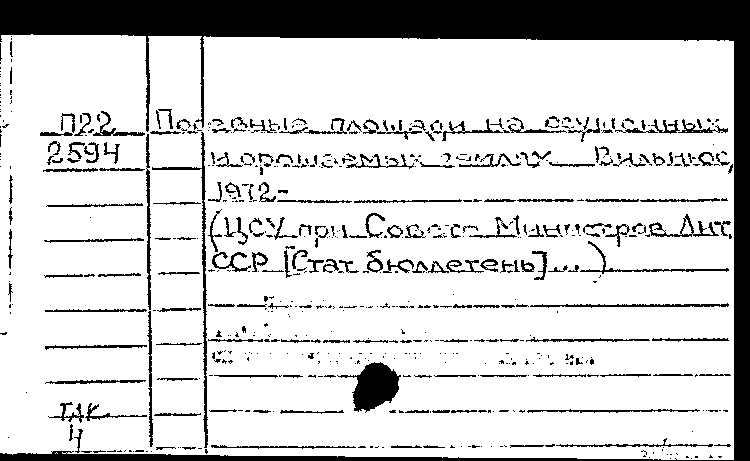 П22 Посевные площади на осушенных
2594 и орошаемых землях Вильнюс,
1972-
(ЦСУ при Совете Министров Лит
ССР [Стат бюллетень]...).
ТАК
4